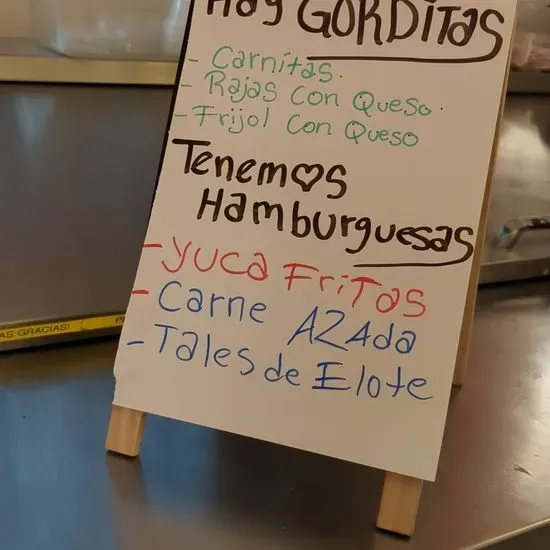 Hay GORDITAS
- Carnitas.
- Rajas con Queso.
- Frijol con Queso
Tenem♡s
Hamburguesas
- yuca FriTas
- Carne AZAda
- Tales de Elote
AS GRACIAS!